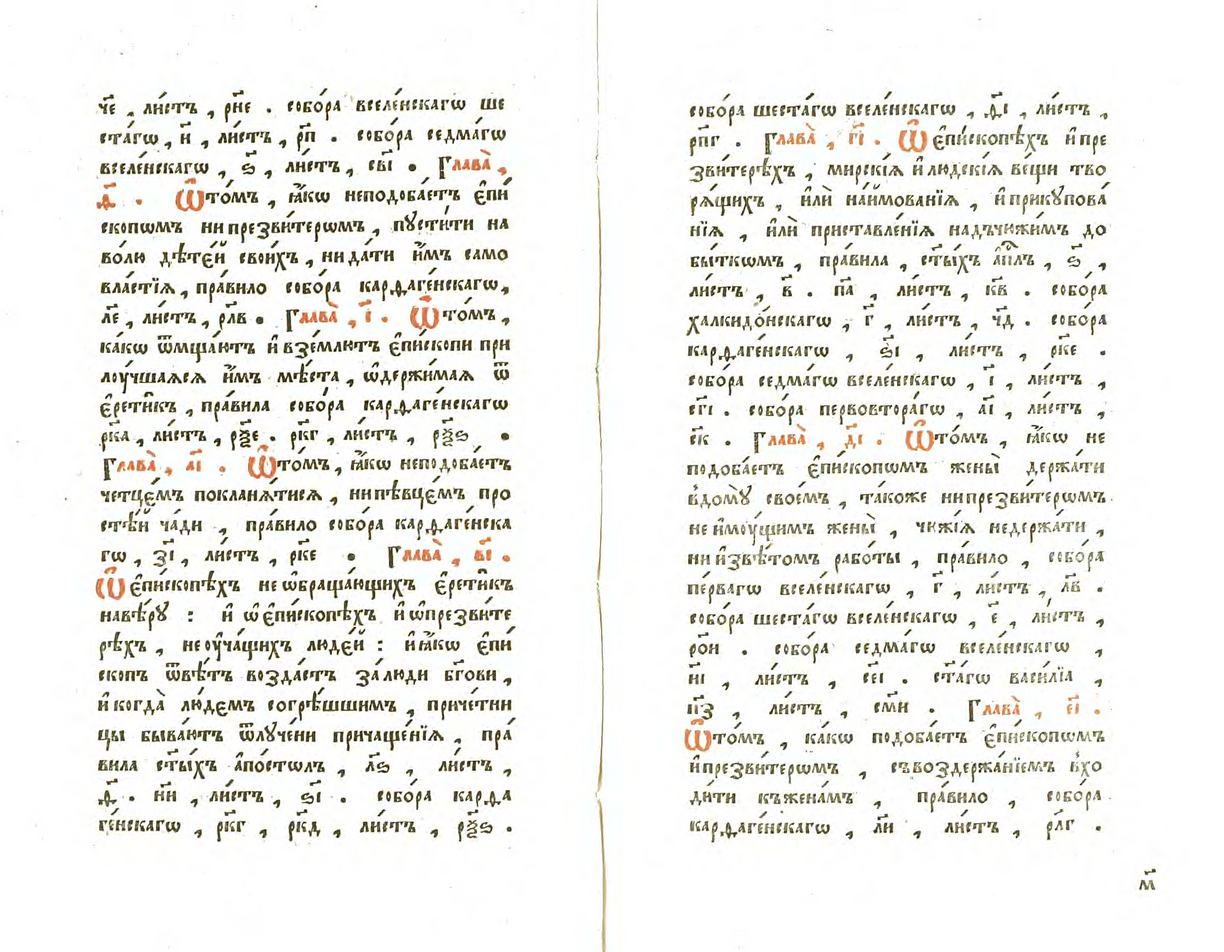 ч҃е , ли́стъ , рн҃е . собо́ра вселе́нскагѡ ше
ста́гѡ , и҃ , ли́стъ , рп҃ . собо́ра седма́гѡ
вселе́нскагѡ , ѕ҃ , ли́стъ , св҃і . Глава̀ ,
ѳ҃ . Ѿто́мъ , ꙗ҆́кѡ неподоба́етъ є҆пи
скопѡмъ нипрезви́терѡмъ , пꙋсти́ти на
во́лю дѣте́й свои́хъ , нида́ти и҆̀мъ само
вла́стїѧ , пра́вило собо́ра карѳаге́нскагѡ ,
л҃е , ли́стъ , рл҃в . Глава̀ , і҃ . Ѿто́мъ ,
ка́кѡ ѿмща́ютъ и҆ взе́млютъ є҆пи́скопи при
лоу́чшаѧсѧ и҆̀мъ мѣ́ста , ѡ҆держи́маѧ ѿ
є҆рети̑къ , пра́вила собо́ра карѳаге́нскагѡ
рк҃а , ли́стъ , рѯ҃е . рк҃г , ли́стъ , рѯ҃ѕ .
Глава̀ , а҃і . Ѿто́мъ , ꙗ҆́кѡ неподоба́етъ
четце́мъ покланѧ́тисѧ , нипѣвце́мъ про
сте́й ча́ди , пра́вило собо́ра карѳаге́нска
гѡ , з҃і , ли́стъ , рк҃е . Глава̀ , в҃і .
Ѡ҆ є҆пи́скопѣхъ не ѡ҆браща́ющихъ є҆рети̑къ
навѣ́рꙋ : и҆ ѡ҆ є҆пи́скопѣхъ и҆ ѡ҆презви́те
рѣхъ , неоу҆ча́щихъ люде́й : и҆ ꙗ҆́кѡ є҆пи́
скопъ ѿвѣ́тъ возда́стъ за лю́ди бг҃ови ,
и҆ когда̀ лю́демъ согрѣ́шшимъ , приче́тни
цы быва́ютъ ѿлꙋ́чени причаще́нїѧ , пра́
вила ст҃ы́хъ а҆по́столъ , л҃ѕ , ли́стъ ,
ѳ҃ . н҃и , ли́стъ , ѕ҃і . собо́ра карѳа
ге́нскагѡ , рк҃г , рк҃д , ли́стъ , рѯ҃ѕ .
собо́ра шеста́гѡ вселе́нскагѡ , ѳ҃і , ли́стъ ,
рп҃г . Глава̀ , г҃і . Ѡ҆ є҆пи́скопѣхъ и҆ пре
зви́терѣхъ , мирскі́ѧ и҆ людскі́ѧ ве́щи тво
рѧ́щихъ , и҆лѝ наи҆мова́нїѧ , и҆ прикꙋпова́
нїѧ , и҆лѝ приставле́нїѧ надъчюжи́мъ до
бы́ткѡмъ , пра́вила , ст҃ы́хъ а҆п҃лъ , ѕ҃ ,
ли́стъ , в҃ . п҃а , ли́стъ , к҃в . собо́ра
халкидо́нскагѡ , г҃ , ли́стъ , ч҃д . собо́ра
карѳаге́нскагѡ , ѕ҃і , ли́стъ , рк҃е .
собо́ра седма́гѡ вселе́нскагѡ , і҃ , ли́стъ ,
сг҃і . собо́ра первовтора́гѡ , а҃і , ли́стъ ,
с҃к . Глава̀ , д҃і . Ѿто́мъ , ꙗ҆́кѡ не
подоба́етъ є҆пи́скопѡмъ жены̀ держа́ти
вдомꙋ̀ свое́мъ , та́коже нипрезви́терѡмъ
не и҆мꙋ́щимъ жены̀ , чюжі́ѧ недержа́ти ,
ни и҆звѣ́томъ рабо́ты , пра́вило , собо́ра
пе́рвагѡ вселе́нскагѡ , г҃ , ли́стъ , л҃в .
собо́ра шеста́гѡ вселе́нскагѡ , е҃ , ли́стъ ,
ро҃и . собо́ра седма́гѡ вселе́нскагѡ ,
н҃і , ли́стъ , се҃і . ст҃а́гѡ васи́лїа ,
п҃з , ли́стъ , см҃и . Глава̀ , е҃і .
Ѿто́мъ , ка́кѡ подоба́етъ є҆пи́скопѡмъ
и҆ презви́терѡмъ , съвоздержа́нїемъ вхо
ди́ти къжена́мъ , пра́вило , собо́ра
карѳаге́нскагѡ , л҃и , ли́стъ , рл҃г .
м҃